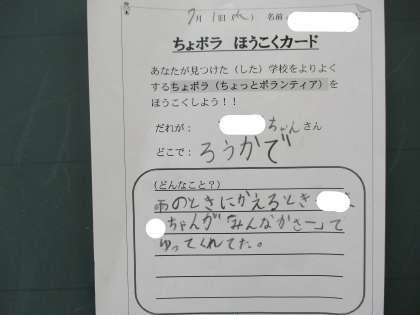 7月1日(火) 名前
ちょボラ ほうこくカード
あなたが見つけた(した)学校をよりよく
するちょボラ(ちょっとボランティア)を
ほうこくしよう！！
だれが： ちゃんさん
どこで： ろうかで
(どんなこと？)
雨のときにかえるとき
ちゃんが「みんなかさー」て
ゆってくれてた。